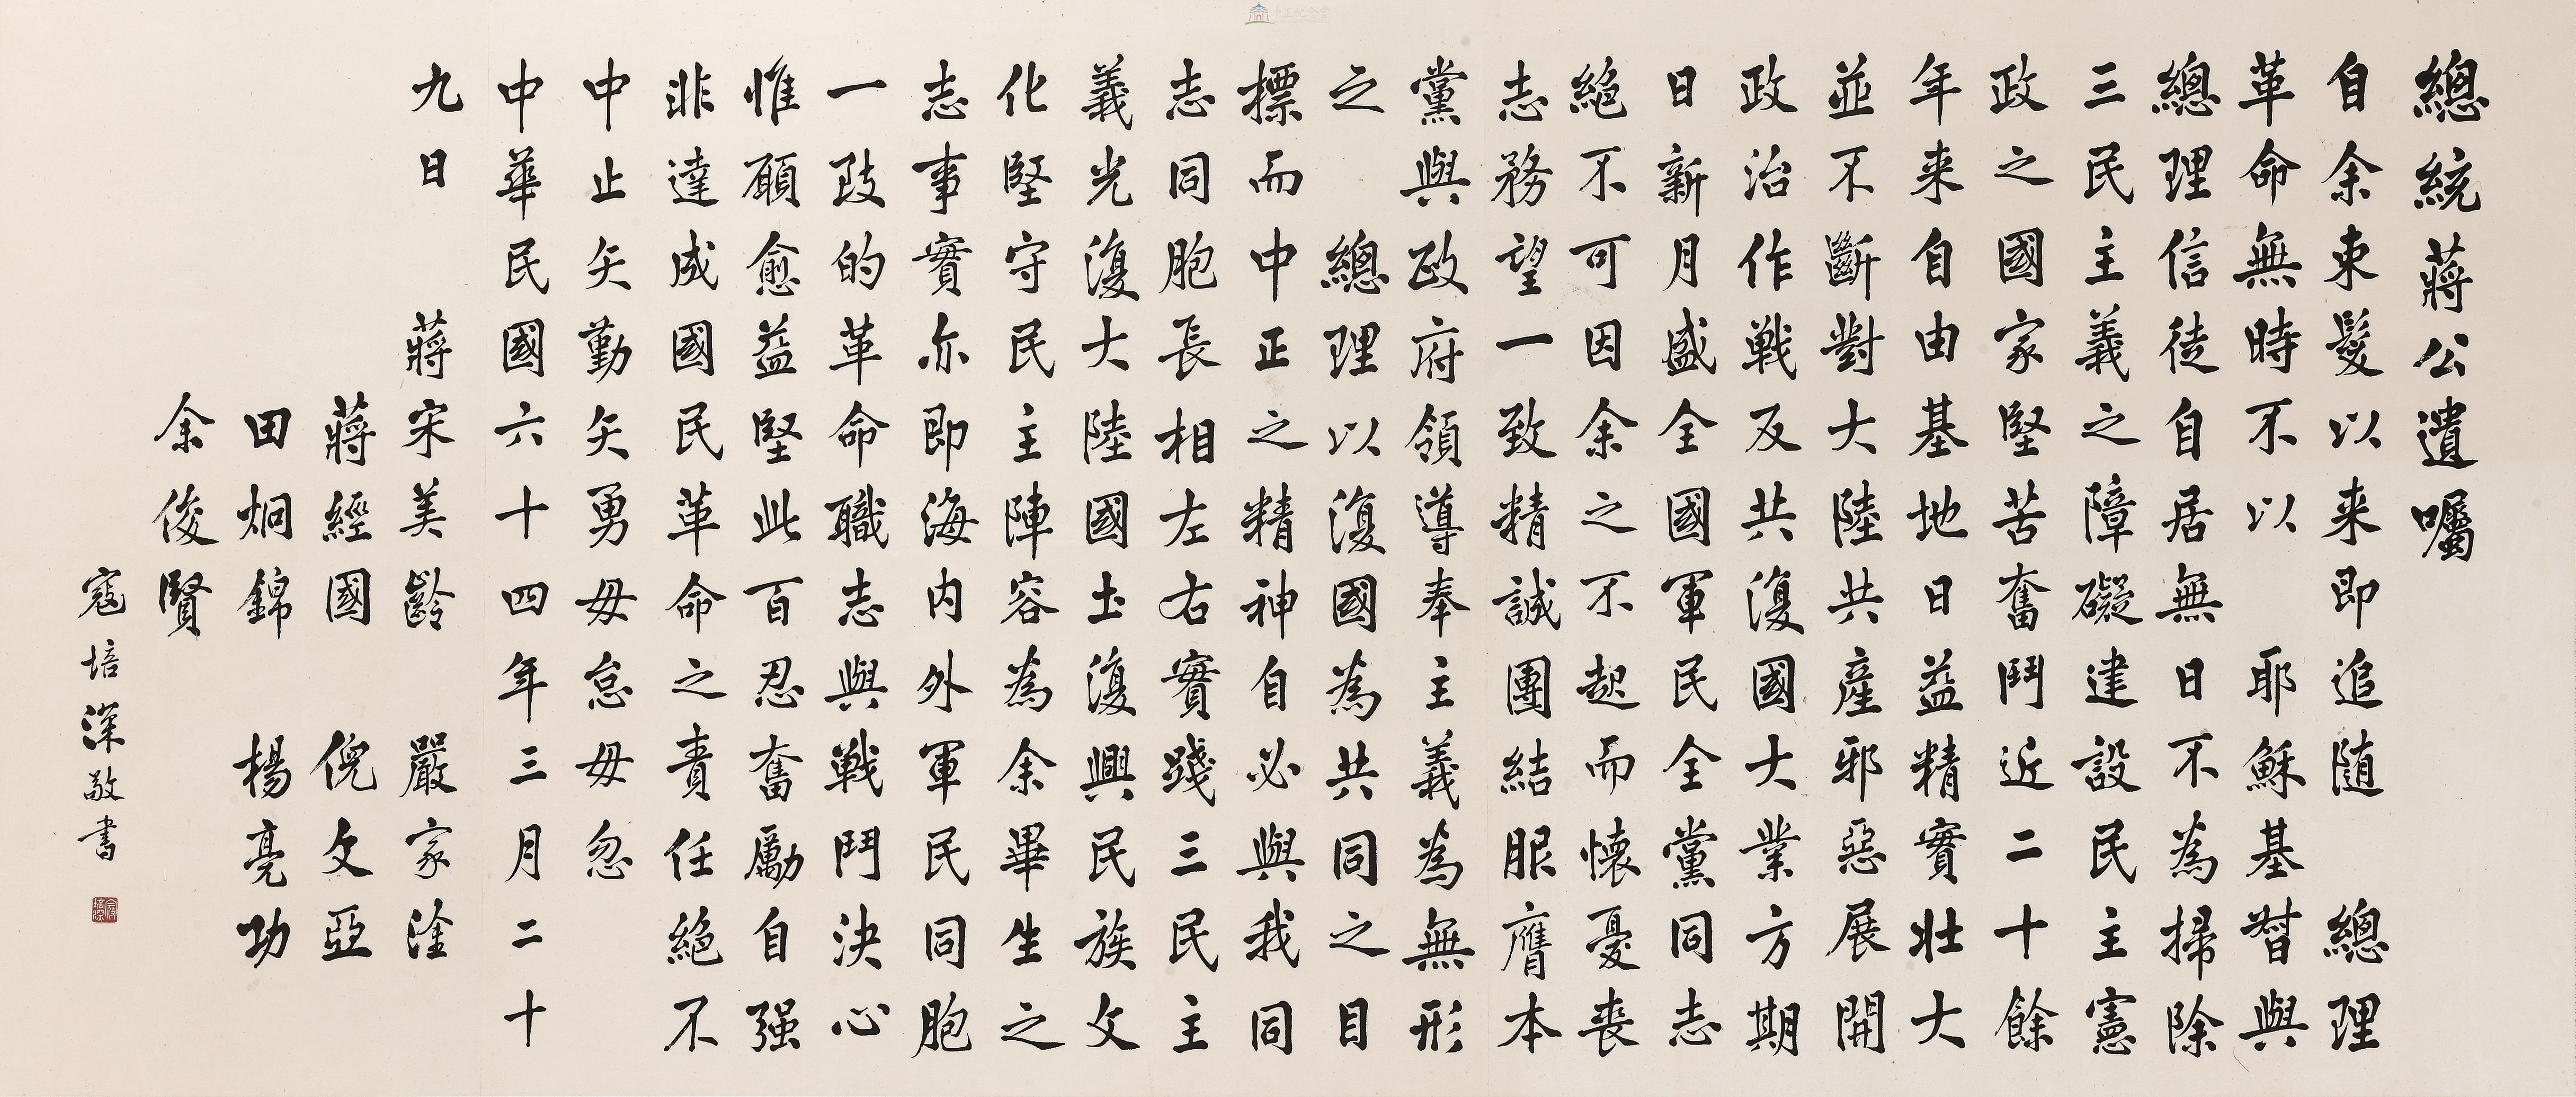 總統蔣公遺囑
自余束髮以来即追随 總理
革命無時不以 耶穌基督與
總理信徒自居無日不為掃除
三民主義之障礙建設民主憲
政之國家堅苦奮鬥近二十餘
年来自由基地日益精實壯大
並不斷對大陸共產邪惡展開
政治作戰反共復國大業方期
日新月盛全國軍民全黨同志
絕不可因余之不起而懷憂喪
志務望一致精誠團結服膺本
黨與政府領導奉主義為無形
之 總理以復國為共同之目
標而中正之精神自必與我同
志同胞長相左右實踐三民主
義光復大陸國土復興民族文
化堅守民主陣容為余畢生之
志事實亦即海內外軍民同胞
一致的革命職志與戰鬥決心
惟願愈益堅此百忍奮勵自强
非達成國民革命之責任絕不
中止矢勤矢勇毋怠毋忽
中華民國六十四年三月二十
九日 蔣宋美齡 嚴家淦
蔣經國 倪文亞
田炯錦 楊亮功
余俊賢
寇培深敬書